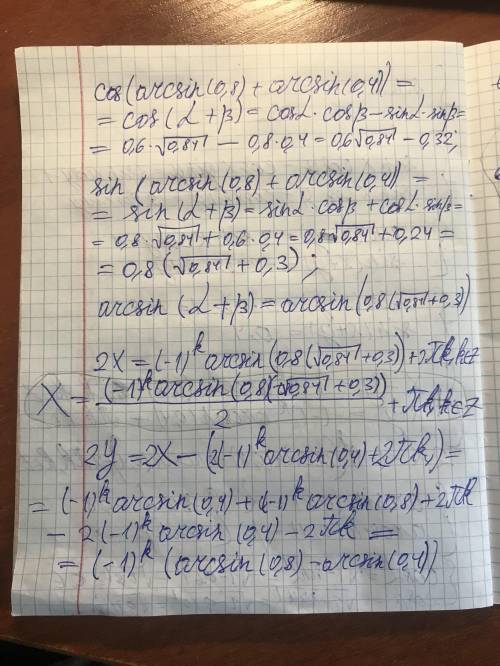 cos(arcsin(0,8) + arcsin(0,4)) =
= cos(α + β) = cosα · cosβ − sinα · sinβ =
= 0,6 · √0,84 − 0,8 · 0,4 = 0,6√0,84 − 0,32;
sin(arcsin(0,8) + arcsin(0,4)) =
= sin(α + β) = sinα · cosβ + cosα · sinβ =
= 0,8 · √0,84 + 0,6 · 0,4 = 0,8√0,84 + 0,24 =
= 0,8(√0,84 + 0,3);
arcsin(α + β) = arcsin(0,8(√0,84 + 0,3)
2X = (-1)^k arcsin(0,8(√0,84 + 0,3)) + 2πk, k∈Z
X = ((-1)^k arcsin(0,8(√0,84 + 0,3)) / 2 + πk, k∈Z
2y = 2X − (2(-1)^k arcsin(0,4) + 2πk) =
= (-1)^k arcsin(0,4) + (-1)^k arcsin(0,8) + 2πk
− 2(-1)^k arcsin(0,4) − 2πk =
= (-1)^k (arcsin(0,8) − arcsin(0,4))